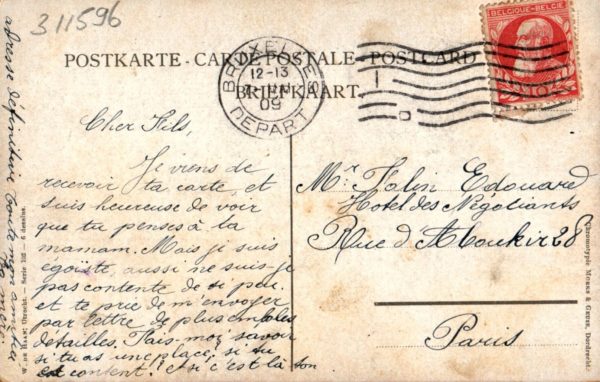 311596
POSTKARTE - CARTE POSTALE - POSTCARD
BRIEFKAART.
BRUXELLES
12-13
09
DEPART
BELGIQUE-BELGIË
10
Cher Fils,
Je viens de
recevoir ta carte, et
suis heureuse de voir
que tu penses à ta
mamam. Mais je suis
égoïste, aussi ne suis-je
pas contente de si peu.
et te prie de m'envoyer
par lettre de plus amples
detailles. Fais-moi savoir
si tu as une place, si tu
est content! et si c'est là ton
adresse définitive
Mr Jolin Edouard
Hotel des Négotiants
Rue d'Aboukir 28
Paris
W. DE HAAN, Utrecht. - Serie 102 - 6 dessins
Chromotypie MORKS & GEUZE, Dordrecht.